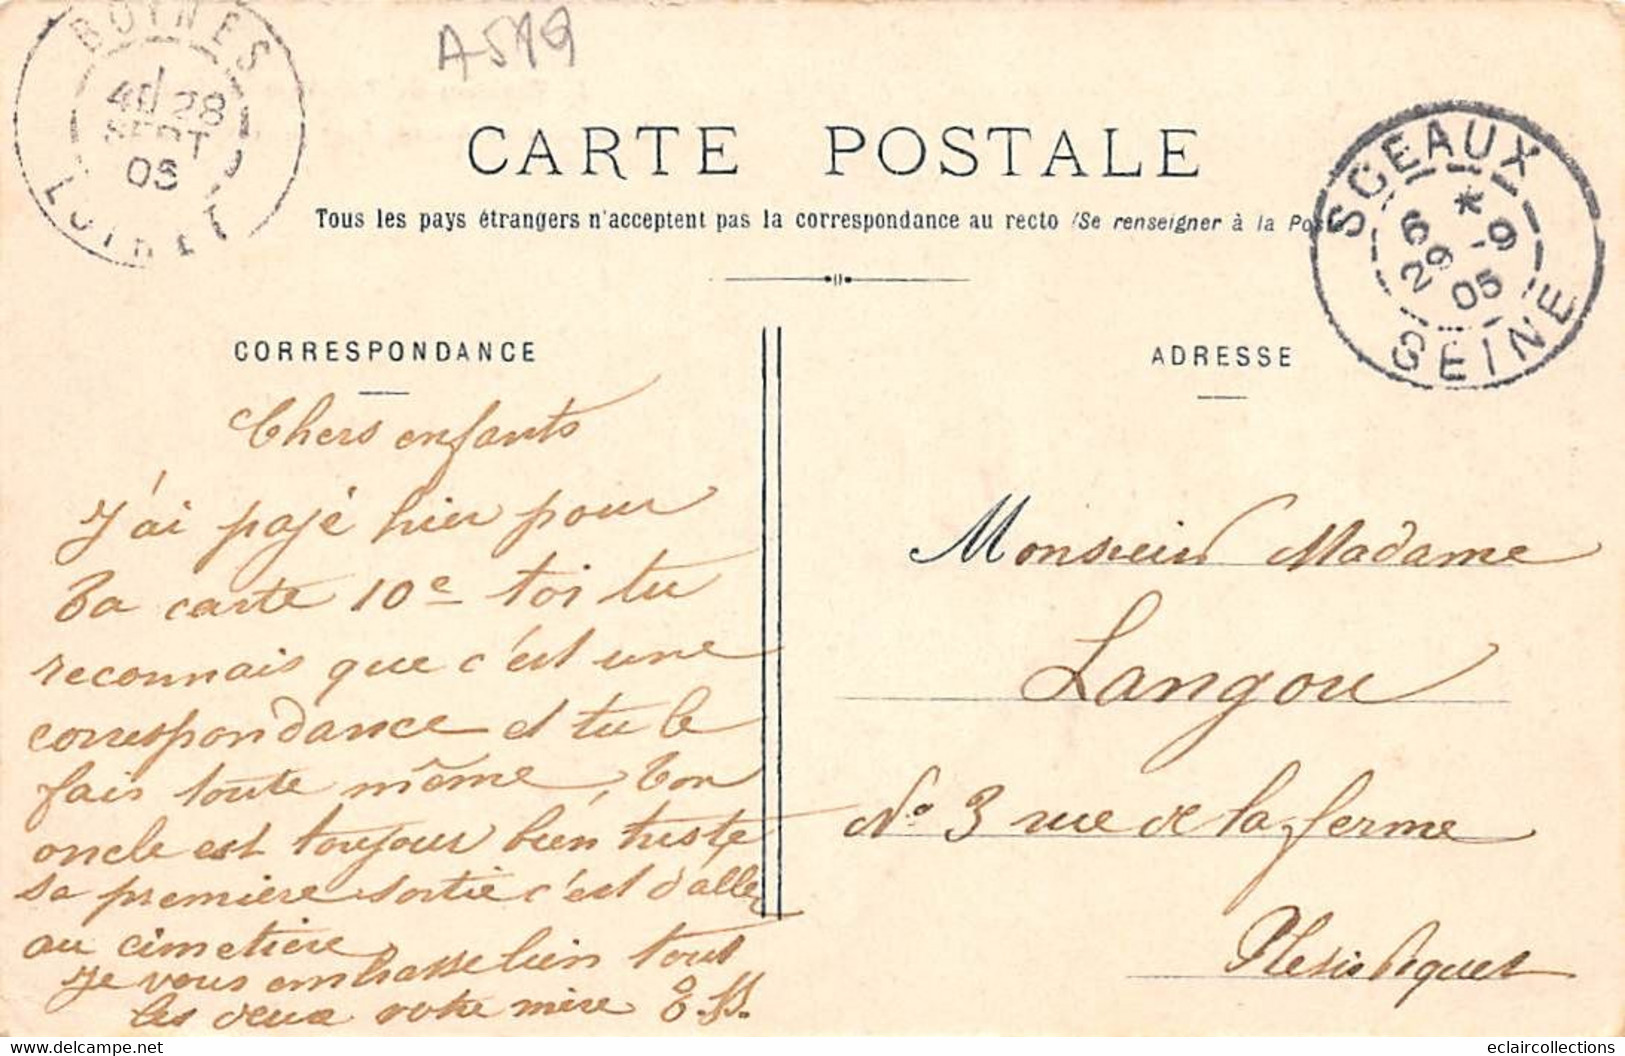 BOYNES
28
SEPT
05
LOIRET
A519
CARTE POSTALE
Tous les pays étrangers n'acceptent pas la correspondance au recto (Se renseigner à la Pos
SCEAUX
*
6
29 -9
05
SEINE
CORRESPONDANCE
ADRESSE
Chers enfants
J'ai pajé hier pour
ta carte 10e toi tu
reconnais que c'est une
correspondance et tu le
fais toute même, ton
oncle est toujour bien triste
sa première sortie c'est d'aller
au cimetière
Je vous embrasse bien tout
les deux votre mère
Monsieur Madame
Langou
No 3 rue de la ferme
Plesis Piquet
delcampe.net
eclaircollections